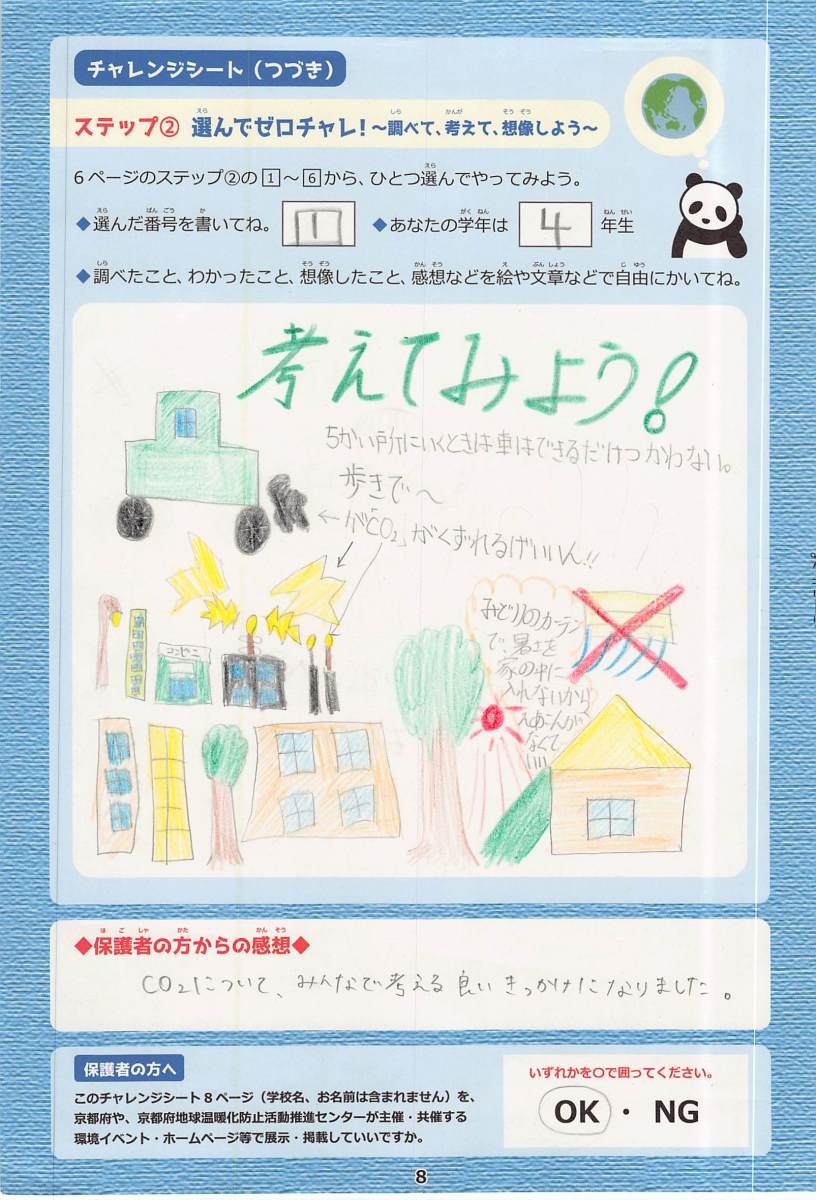 チャレンジシート（つづき）
ステップ② 選んでゼロチャレ！～調べて、考えて、想像しよう～
6ページのステップ②の1～6から、ひとつ選んでやってみよう。
◆選んだ番号を書いてね。 1 ◆あなたの学年は 4 年生
◆調べたこと、わかったこと、想像したこと、感想などを絵や文章などで自由にかいてね。
考えてみよう！
ちかい所にいくときは車はできるだけつかわない。
歩きで〜
←が「CO₂」がくずれるげいいん!!
コンビニ
みどりのカーテン
で、暑さを
家の中に
入れないから
えあこんが
なくて
いい
◆保護者の方からの感想◆
CO₂について、みんなで考える良いきっかけになりました。
保護者の方へ
このチャレンジシート8ページ（学校名、お名前は含まれません）を、
京都府や、京都府地球温暖化防止活動推進センターが主催・共催する
環境イベント・ホームページ等で展示・掲載していいですか。
いずれかを○で囲ってください。
OK ・ NG
8